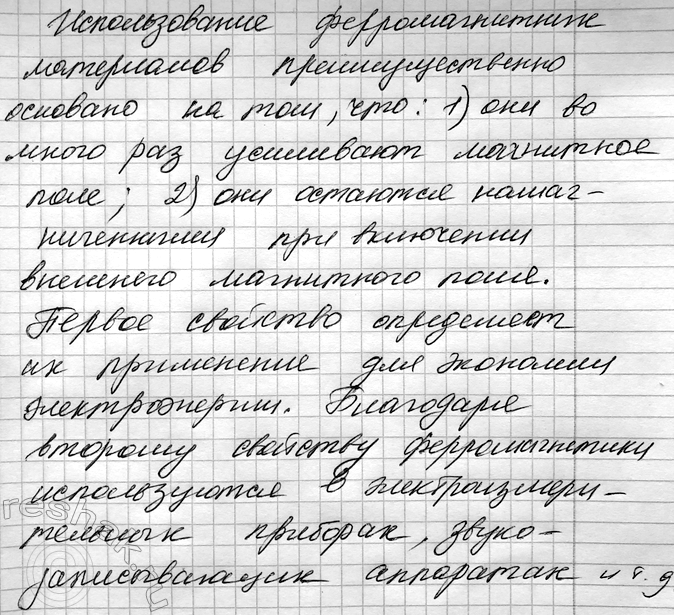 Использование ферромагнитных
материалов преимущественно
основано на том, что: 1) они во
много раз усиливают магнитное
поле; 2) они остаются намаг-
ниченными при включении
внешнего магнитного поля.
Первое свойство определяет
их применение для экономии
электроэнергии. Благодаря
второму свойству ферромагнетики
используются в электроизмери-
тельных приборах, звуко-
записывающих аппаратах и т. д
reshak.ru